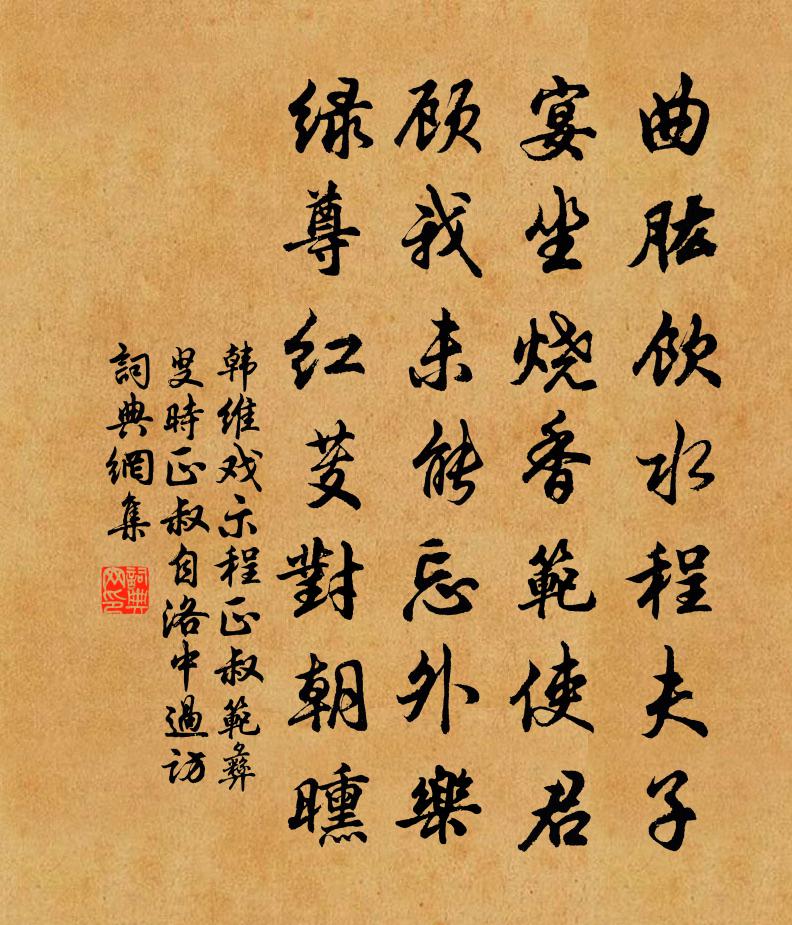 曲肱饮水程夫子
宴坐烧香範使君
顾我未能忘外樂
绿尊红芰對朝曛
韩维戏示程正叔範彝
叟時正叔自洛中過访
詞典網集
詞典网印